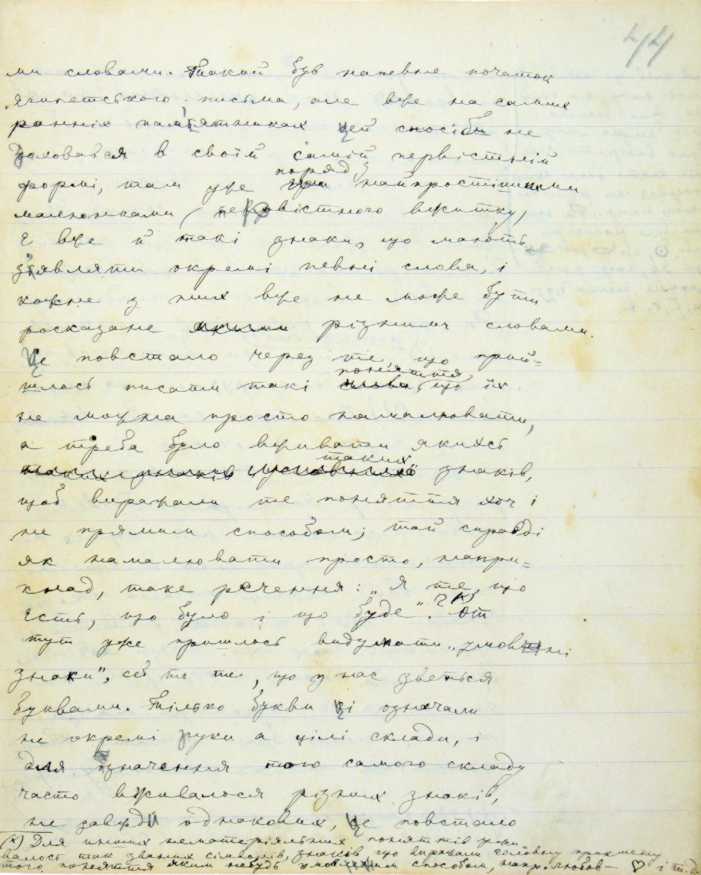 44
ми словами. Такий був напевне початок
єгипетського письма, але вже на самих
ранніх памʼятниках цей спосіб не
доховався в своїй самій первістній
поряд з
формі, там уже найпростішими
малюнками, первістного вжитку,
є вже й такі знаки, що мають
зʼявляти окремі певні слова, і
кожне з них вже не може бути
росказане різними словами.
Це повстало через те, що прий-
поняття,
шлось писати такі що їх
не можна просто намалювати,
а треба було вживати якихсь
таких
знаків,
щоб виражали те поняття хоч і
не прямим способом; так справді
як намалювати просто, напри-
клад, таке речення: „Я те, що
єсть, що було і що буде"? *) От
тут уже прийшлось видумати „умовні
знаки", се б то те, що у нас зветься
буквами. Тілько букви ці означали
не окремі звуки а цілі склади, і
для означення того самого складу
часто вживалося різних знаків,
не завжди однакових, це повстало
*) Для инших нематеріяльних поняттів ужи
валось так званих сімволів, знаків що виражали головну прикмету
того поняття яким небудь способом, напр. любов - ♡ і т. д.